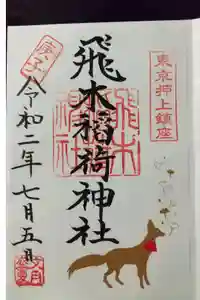 東京押上鎮座
飛木稲荷神社
飛木稲荷社
庚子
令和二年七月五日
文月